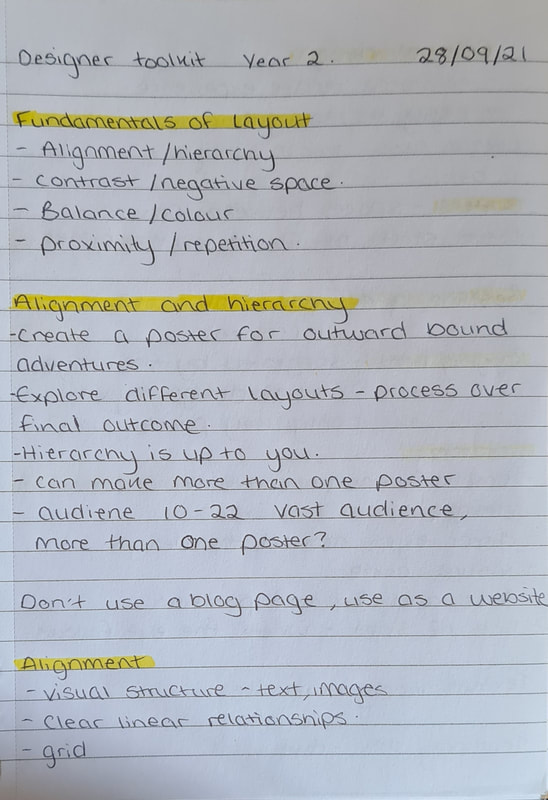 Designer toolkit Year 2. 28/09/21
Fundamentals of Layout
- Alignment/hierarchy
- contrast/negative space.
- Balance/colour
- proximity/repetition.
Alignment and hierarchy
-create a poster for outward bound
adventures.
-Explore different layouts - process over
final outcome.
-Hierarchy is up to you.
- can make more than one poster
- audiene 10-22 vast audience,
more than one poster?
Don't use a blog page, use as a website
Alignment
- visual structure - text, images
- clear linear relationships.
- grid